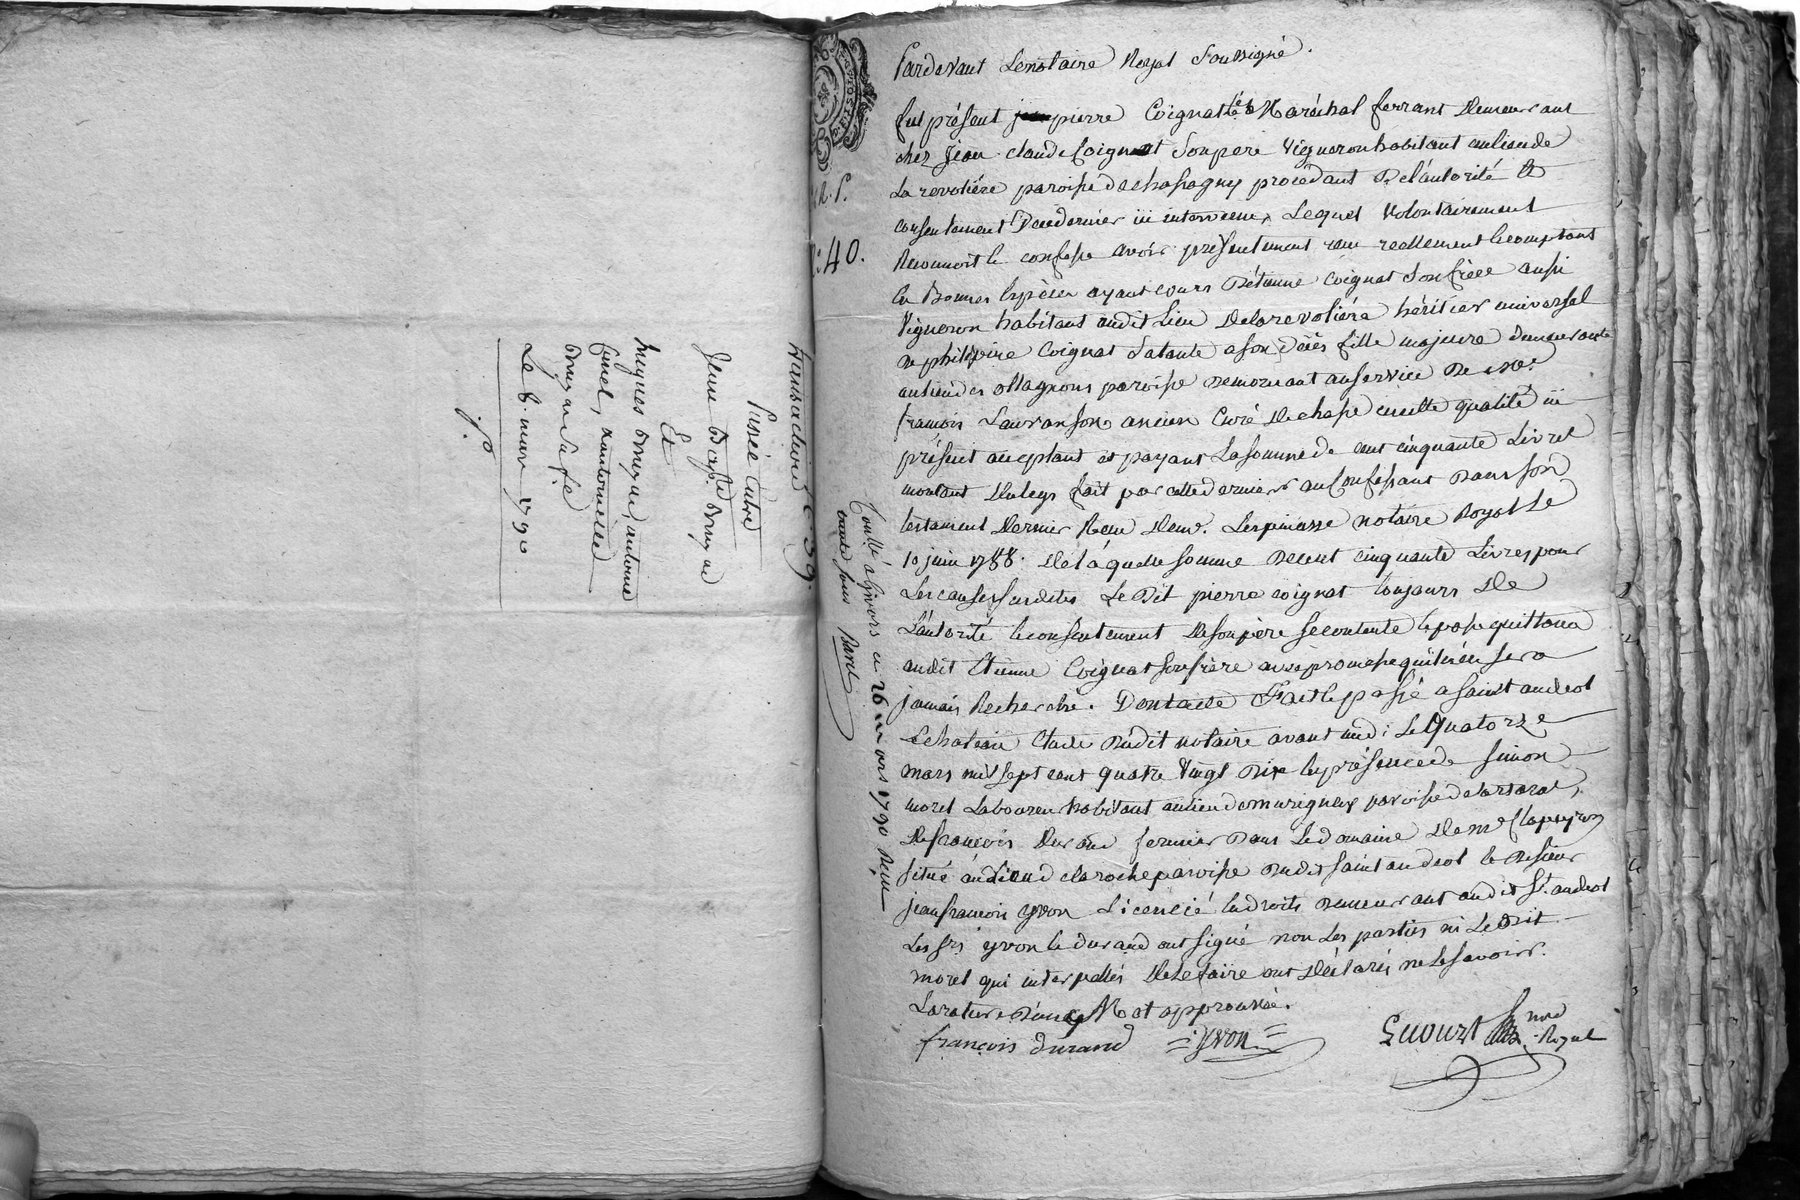 transaction C 39.
Passée Entre
Jean Baptiste
Et
hugues antoine
Le 8. mars 1790
N.° 40.
Controllé a Givors ce 26 mars 1790 Reçu
quinze sous
Pardevant Le notaire Royal Soussigné.
fut présent pierre Coignat Maréchal ferrant Demeurant
chez Jean claude Coignat Son père Vigneron habitant au lieu de
La revolière paroisse de chassagny procédant De l'autorité &
consentement De ce dernier ici intervenu, Lequel Volontairement
Reconnoit & confesse avoir présentement reçu reellement & comptant
En Bonnes Espèces ayant cours D'étienne Coignat Son frère aussi
Vigneron habitant audit Lieu De la revolière héritier universel
de philipine Coignat Sa tante a son décès fille majeure demeurante
au lieu des ollagnons paroisse de mornant au service De m.re
francois Lauranson ancien Curé De chasse en cette qualité ici
présent acceptant et payant La somme de cent cinquante Livres
montant Du legs fait par cette dernière au Confessant Dans son
testament Dernier Reçu De m.e Lespinasse notaire Royal Le
10 juin 1788. De laquelle somme De cent cinquante Livres pour
Les causes susdites Le Dit pierre coignat toujours De
L'autorité & consentement De son père se contente & passe quittance
audit Etienne Coignat son frère avec promesse qu'il n'en sera
jamais Recherché. Dont acte Fait & passé a saint andeol
Le chateau Etude Dudit notaire avant midi Le Quatorze
mars mil sept cent quatre Vingt Dix En présence de simon
morel Laboureur habitant au lieu de paroisse de
De francois Durand fermier Dans Le domaine De m.e
situé au Lieu de la roche paroisse Dudit saint andeol & De sieur
jean francois yvon Licencié En droits Demeurant audit St. andeol
Les srs yvon & durand ont signé non Les parties ni Le Dit
morel qui interpellés De Le faire ont Déclarés ne Le savoir.
La rature D'un Mot approuvée.
françois durand yvon nre
Royal